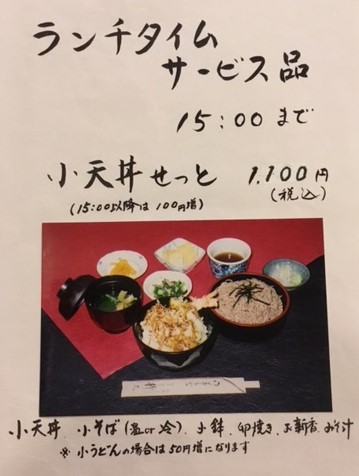 ランチタイム
サービス品
15:00まで
小天丼せっと 1.100円
(税込)
(15:00以降は100円増)
小天丼、小そば(温or冷)、小鉢、卵焼き、お新香、みそ汁
※ 小うどんの場合は50円増になります